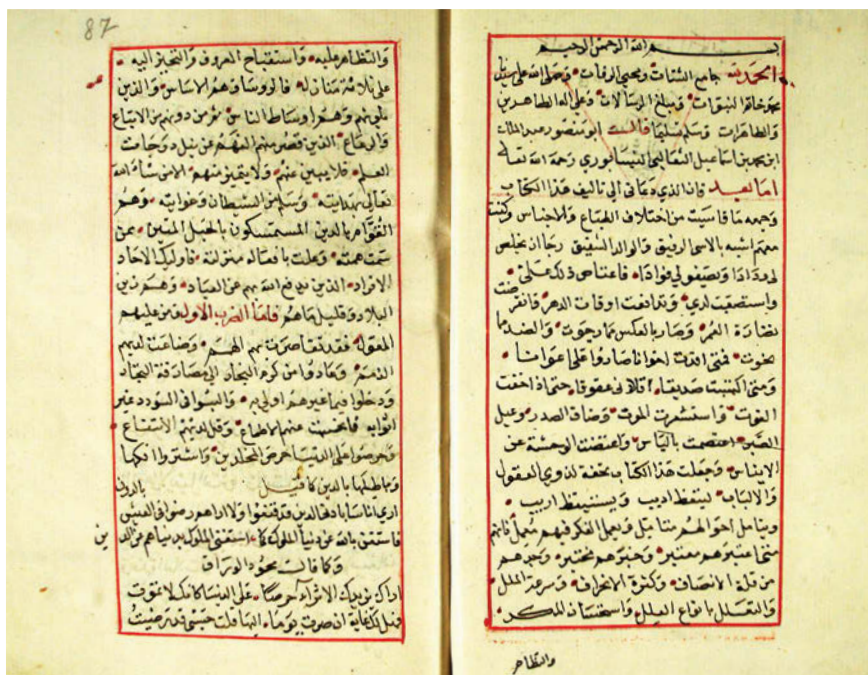 بسم الله الرحمن الرحيم
الحمد لله جامع الشتات ومحيي الرفات وصلى الله على سيدنا
محمد خاتم النبوات ومبلغ الرسالات وعلى اله الطاهرين
والطاهرات وسلم تسليما قالـــت ابو منصور عبد الملك
ابن محمد بن اسماعيل الثعالبي النيسابوري رحمه الله تعالى
اما بعــد فان الذي دعاني الى تاليف هذا الكتاب
وجمعه ما قاسيت من اختلاف الطباع والاجناس وكنت
معهم اشبه بالاسى الرفيق والوالد الشفيق رجا ان يخلص
لي ودادا ويصفو لي فوادا فاعتاص ذلك على
واستصعب لدي وتدانفت اوقات الدهر وانقرضت
نضارة العمر وصار بالعكس مما رجوت والضد مما
فمتى اخوانا صاروا على اعوانا
ومتى اكتسبت صديقا عقوقا حتى اذا خفت
الفوت واستشعرت الموت وضاق الصدر وعيل
الصبر اعتصمت بالياس واعتضت الوحشة عن
الايناس وجعلت هذا الكتاب تحفة لذوي العقول
والالباب ليتعظ اديب ويستيقظ اريب
ويتامل احوالهم متامل ويعمل الفكر فيهم فانهم
متى اعتبرهم معتبر وخبرهم مختبر وجدهم
من قلة الانصاف وكثرة الانحراف وسرعة الملل
والتعلل بانواع العلل واستحسان للمنكر
والتظاهر
87
والتظاهر عليه واستقباح المعروف والتحيز اليه
على ثلاثة منازل فالروسا هم الاساس والذين
يلونهم وهم اوساط الناس ثم من دونهم من الاتباع
والرعاع الذين قصر منهم الفهم عن نيل درجات
العلم فلا يبين عنهم ولا يتميز منهم الا من شاء الله
تعالى بهدايته وسلم من الشيطان وغوايته وهم
القوام بالدين المستمسكون بالحبل المتين ممن
سمت همته وعلت بافعاله منزلته فاوليك الاحاد
الافراد الذين يدفع الله بهم عن العباد وهم زين
البلاد وقليل ما هم فاما الضرب الاول فمن عليهم
المعول فقد تقاصرت بهم الهمم وضاعت لديهم
الذمم وعادوا من كرم
ودخلوا فيما غيرهم اولى به والبسوا في السودد غير
اثوابه فانحسمت عنهم الاطماع وقل لديهم الانتفاع
وحرصوا على الدنيا حرص المخلدين واشتروا
بالدين كما قيل
ارى اناسا بادنى الدين قد قنعوا ولا اراهم رضوا في العيش بالدون
فاستغن بالله عن دنيا الملوك كما استغنى الملوك بدنياهم عن الدين
وكما قالـــت محمود الوراق
اراك يزيدك الاثراء حرصا على الدنيا كانك لا تموت
فهل لك غاية ان صرت يوما اليها قلت حسبي قد رضيت